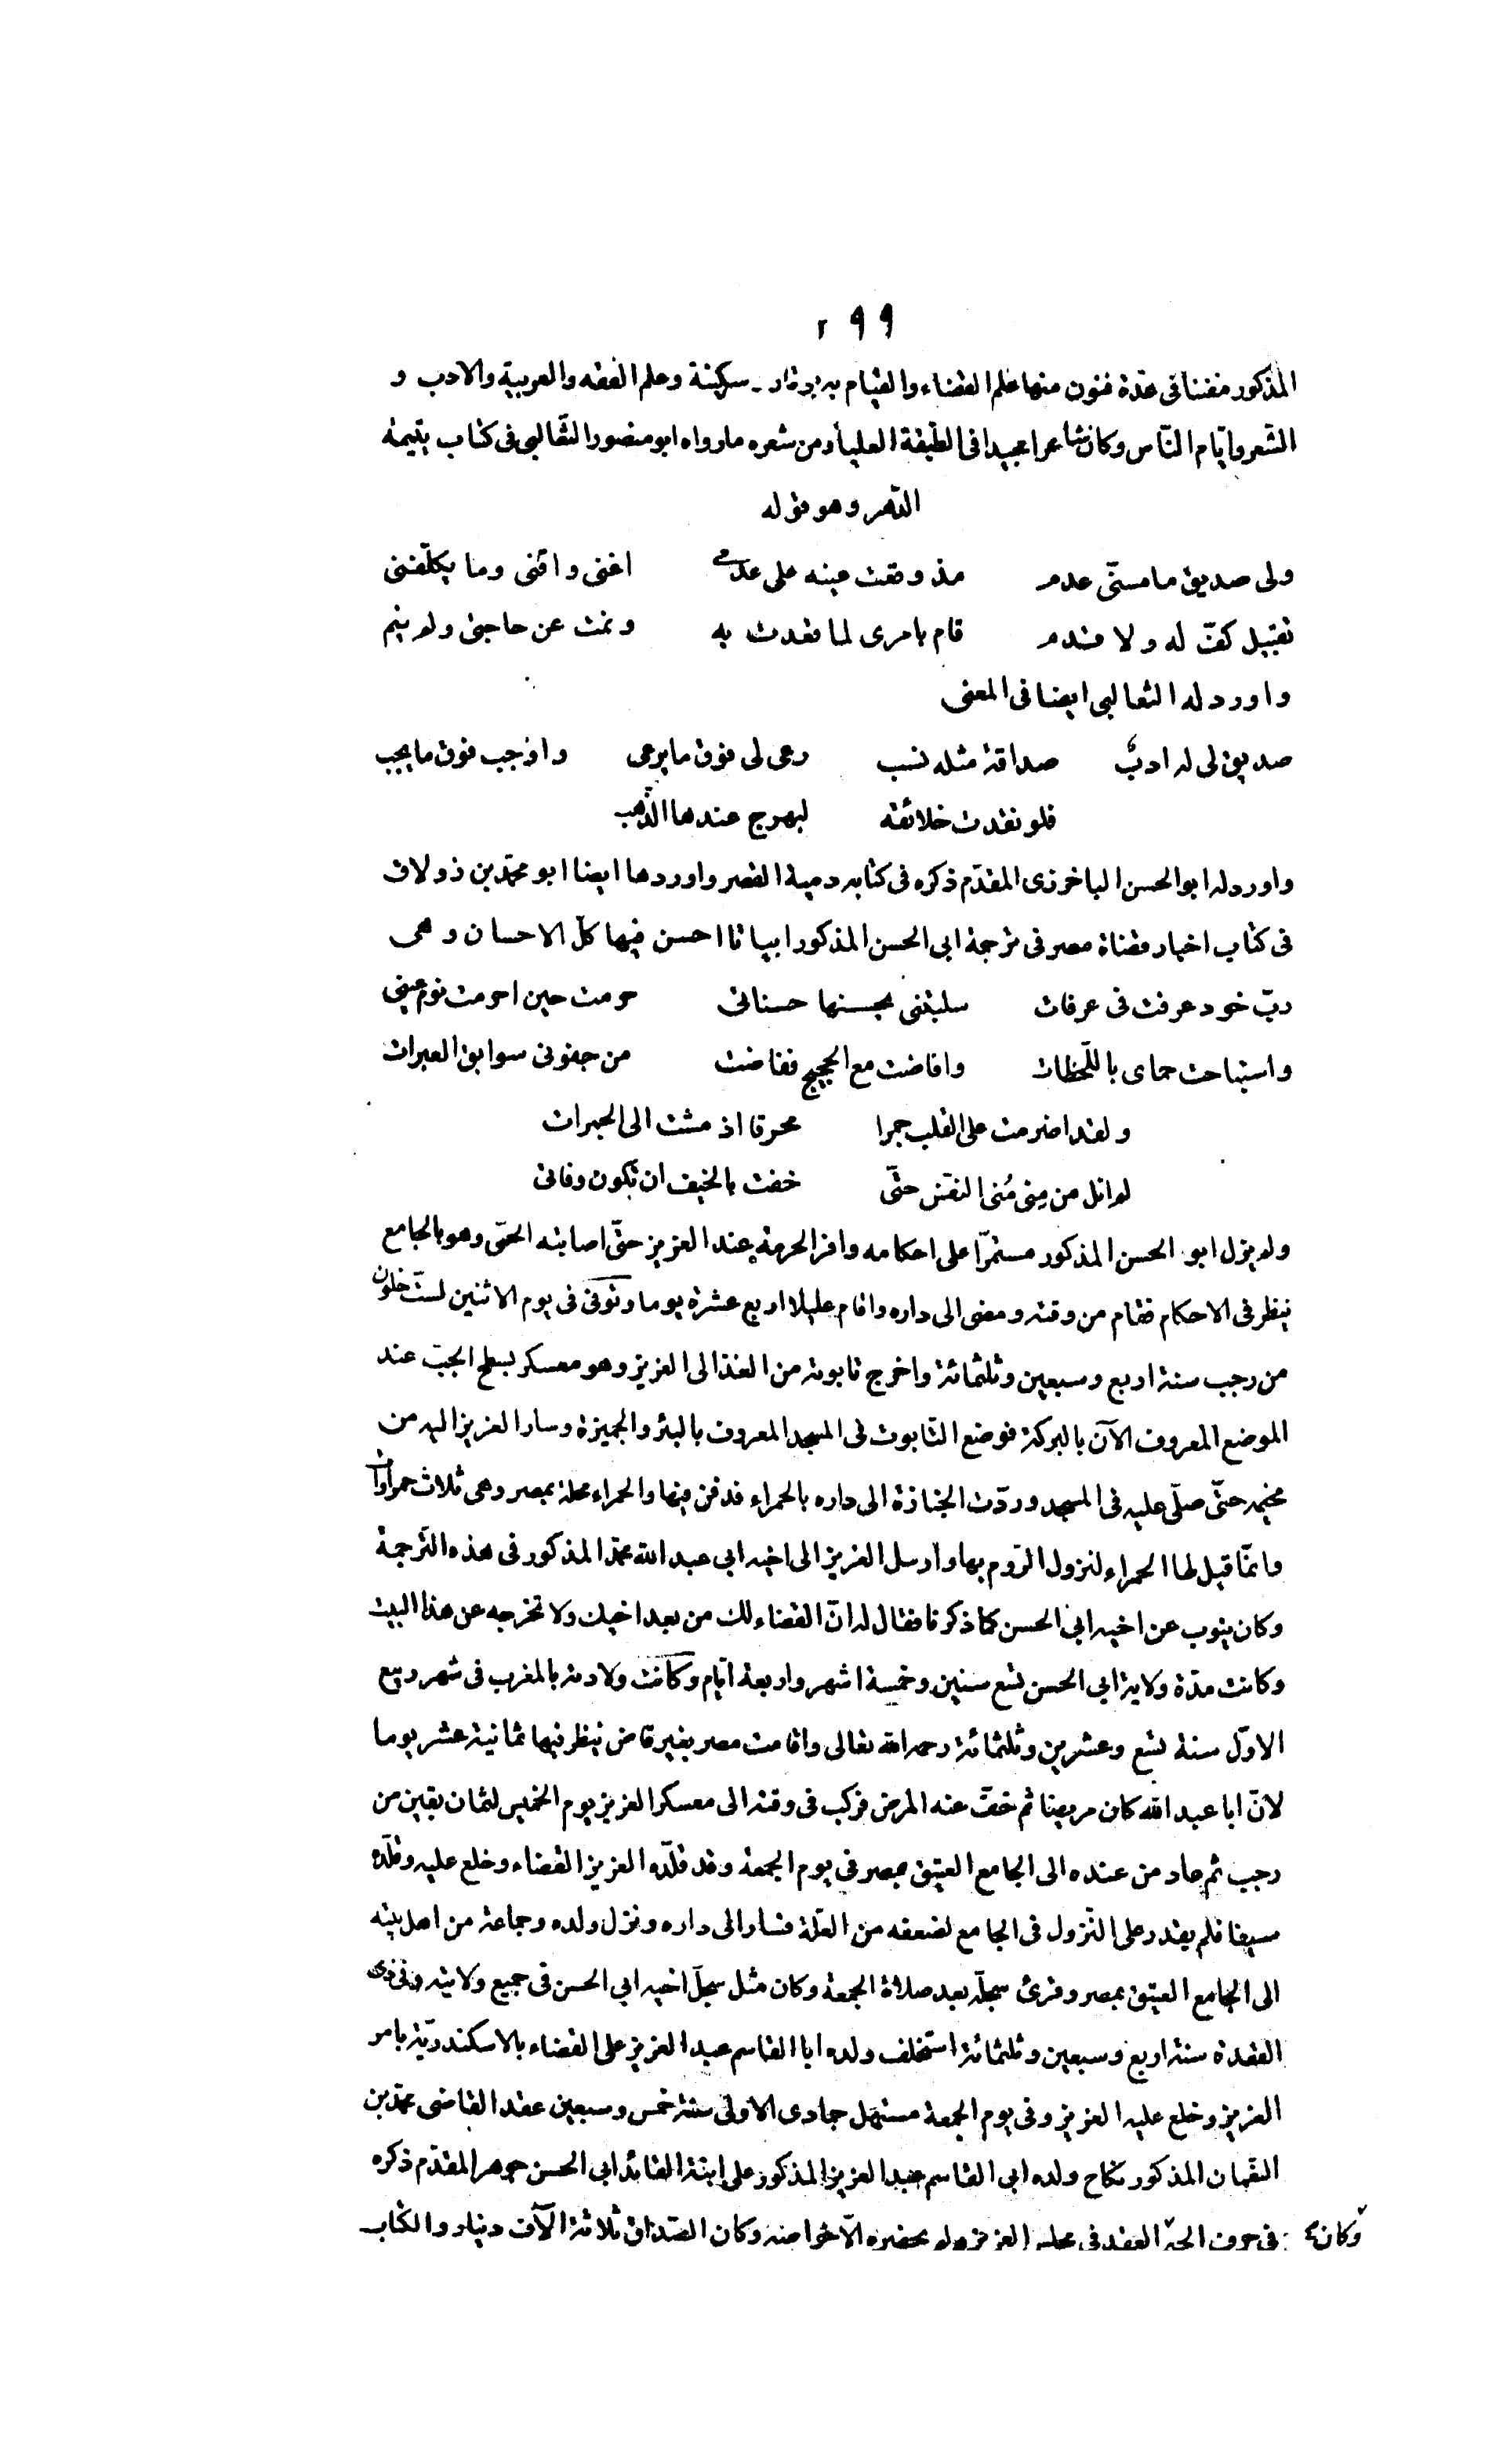 ٢٩٩
المذكور مفننا فى عدّة فنون منها علم القضاء والقيام به بوقار وسكينة وعلم الفقه والعربية والادب و
الشّعر وايّام النّاس وكان شاعرا مجيدا فى الطّبقة العليا ومن شعره ما رواه ابو منصور الثّعالبى فى كتاب يتيمة
الدّهر وهو قوله
ولى صديق ما مسنّى عدم مذ وقعت عينه على عدمى اغنى واقنى وما يكلّفنى
تقبيل كفّ له ولا قدم قام بامرى لما قعدت به ونمت عن حاجتى ولم ينم
واورد له الثعالبى ايضا فى المعنى
صديق لى له ادبٌ صداقة مثله نسب رعى لى فوق ما يرعى واوجب فوق ما يجب
فلو نقدت خلائقه لبهرج عندها الذّهب
واورد له ابو الحسن الباخرزى المقدّم ذكره فى كتابه دمية القصر واوردها ايضا ابو محمّد بن زولاق
فى كتاب اخبار قضاة مصر فى ترجمة ابى الحسن المذكور ابياتا احسن فيها كلّ الاحسان وهى
ربّ خود عرفت فى عرفات سلبتنى بحسنها حسناتى حرمت حين احرمت نوم عينى
واستباحت حماى باللّحظات وافاضت مع الحجيج ففاضت من جفونى سوابق العبرات
ولقد اضرمت على القلب جمرا محرقا اذ مشت الى الجمرات
لم انل من مِنى مُنى النفس حتّى خفت بالخيف ان تكون وفاتى
ولم يزل ابو الحسن المذكور مستمرّا على احكامه وافر الحرمة عند العزيز حتّى اصابته الحمّى وهو بالجامع
ينظر فى الاحكام فقام من وقته ومضى الى داره واقام عليلا اربع عشرة يوما وتوفى فى يوم الاثنين لستّ خلون
من رجب سنة اربع وسبعين وثلثمائة واخرج تابوته من الغد الى العزيز وهو معسكر بسطح الجبّ عند
الموضع المعروف الآن بالبركة فوضع التّابوت فى المسجد المعروف بالبئر والجميزة وسار العزيز اليه من
مخيمه حتّى صلّى عليه فى المسجد وردّت الجنازة الى داره بالحمراء فدفن فيها والحمراء محلة بمصر وهى ثلاث حمراوات
وانمّا قيل لها الحمراء لنزول الرّوم بها وارسل العزيز الى اخيه ابى عبد الله محمّد المذكور فى هذه التّرجمة
وكان ينوب عن اخيه ابى الحسن كما ذكرنا فقال له انّ القضاء لك من بعد اخيك ولا نخرجه عن هذا البيت
وكانت مدّة ولاية ابى الحسن تسع سنين وخمسة اشهر واربعة ايّام وكانت ولادته بالمغرب فى شهر ربيع
الاوّل سنة تسع وعشرين وثلثمائة رحمه الله تعالى واقامت مصر بغير قاض ينظر فيها ثمانية عشر يوما
لانّ ابا عبد الله كان مريضا ثم خفّ عنه المرض فركب فى وقته الى معسكر العزيز يوم الخميس لثمان بقين من
رجب ثم عاد من عنده الى الجامع العتيق بمصر فى يوم الجمعة وقد قلّده العزيز القضاء وخلع عليه وقلّده
سيفا فلم يقدر على النّزول فى الجامع لضعفه من العلّة فسار الى داره ونزل ولده وجماعة من اهل بيته
الى الجامع العتيق بمصر وقرئ سجلّه بعد صلاة الجمعة وكان مثل سجلّ اخيه ابى الحسن فى جميع ولايته وفى ذى
القعدة سنة اربع وسبعين وثلثمائة استخلف ولده ابا القاسم عبد العزيز على القضاء بالاسكندريّة بامر
العزيز وخلع عليه العزيز وفى يوم الجمعة مستهل جمادى الاولى سنة خمس وسبعين عقد القاضى محمّد بن
النّعمان المذكور نكاح ولده ابى القاسم عبد العزيز المذكور على ابنة القائد ابى الحسن جوهر المقدّم ذكره
فى حرف الجيم وكان العقد فى مجلس العزيز ولم يحضره الّا خواصه وكان الصّداق ثلاثة الآف دينار والكتاب